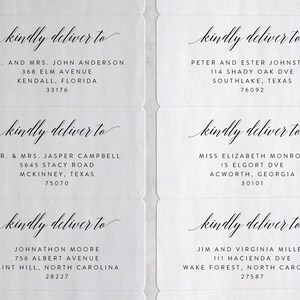 kindly deliver to
. AND MRS. JOHN ANDERSON
368 ELM AVENUE
KENDALL, FLORIDA
33176
kindly deliver to
PETER AND ESTER JOHNST
114 SHADY OAK DVE
SOUTHLAKE, TEXAS
76092
kindly deliver to
R. & MRS. JASPER CAMPBELL
5645 STACY ROAD
MCKINNEY, TEXAS
75070
kindly deliver to
MISS ELIZABETH MONRO
15 ELGORT DVE
ACWORTH, GEORGIA
30101
kindly deliver to
JOHNATHON MOORE
756 ALBERT AVENUE
INT HILL, NORTH CAROLINA
28227
kindly deliver to
JIM AND VIRGINIA MILLE
111 HACIENDA DVE
WAKE FOREST, NORTH CAROL
27587